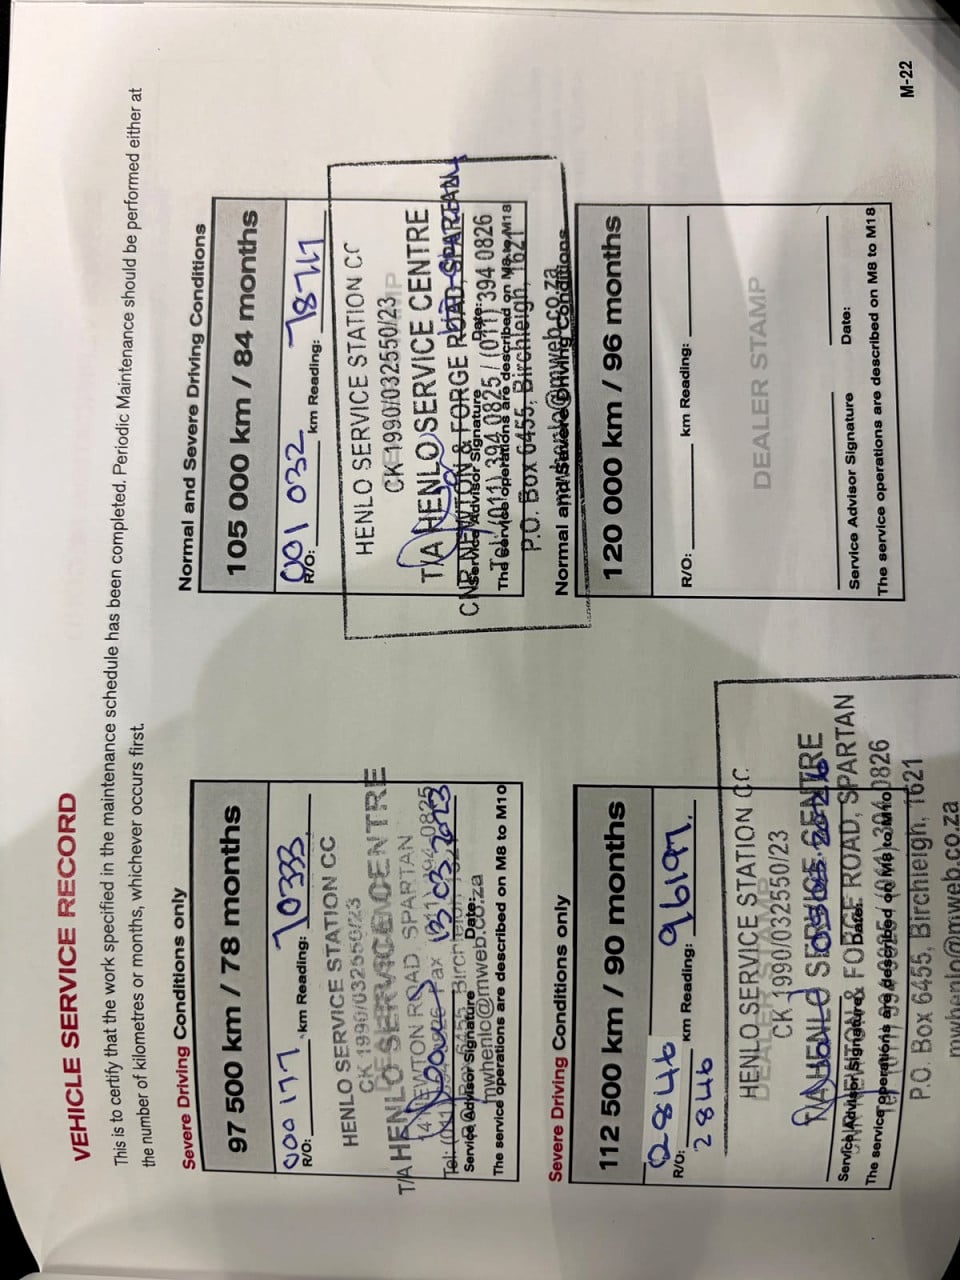 VEHICLE SERVICE RECORD
This is to certify that the work specified in the maintenance schedule has been completed. Periodic Maintenance should be performed either at
the number of kilometres or months, whichever occurs first.
Severe Driving Conditions only
97 500 km / 78 months
000177 70333
R/O: km Reading:
HENLO SERVICE STATION CC
CK 1990/032550/23
T/A HENLO SERVICE CENTRE
NEWTON ROAD, SPARTAN
Service Advisor Signature Date:
mwhenlo@mweb.co.za
The service operations are described on M8 to M10
Normal and Severe Driving Conditions
105 000 km / 84 months
001 032 78717
R/O: km Reading:
HENLO SERVICE STATION CC
CK 1990/032550/23
T/A HENLO SERVICE CENTRE
CNR NEWTON & FORGE ROAD, SPARTAN
Service Advisor Signature Date:
Tel: (011) 394 0825 / (011) 394 0826
The service operations are described on M8 to M18
P.O. Box 6455, Birchleigh, 1621
mwhenlo@mweb.co.za
Severe Driving Conditions only
112 500 km / 90 months
02846 96197.
R/O: km Reading:
2846
HENLO SERVICE STATION CC
DEALER STAMP
CK 1990/032550/23
T/A HENLO SERVICE CENTRE
CNR NEWTON & FORGE ROAD, SPARTAN
Service Advisor Signature Date:
The service operations are described on M8 to M10
P.O. Box 6455, Birchleigh, 1621
mwhenlo@mweb.co.za
Normal and Severe Driving Conditions
120 000 km / 96 months
R/O: km Reading:
DEALER STAMP
Service Advisor Signature Date:
The service operations are described on M8 to M18
M-22